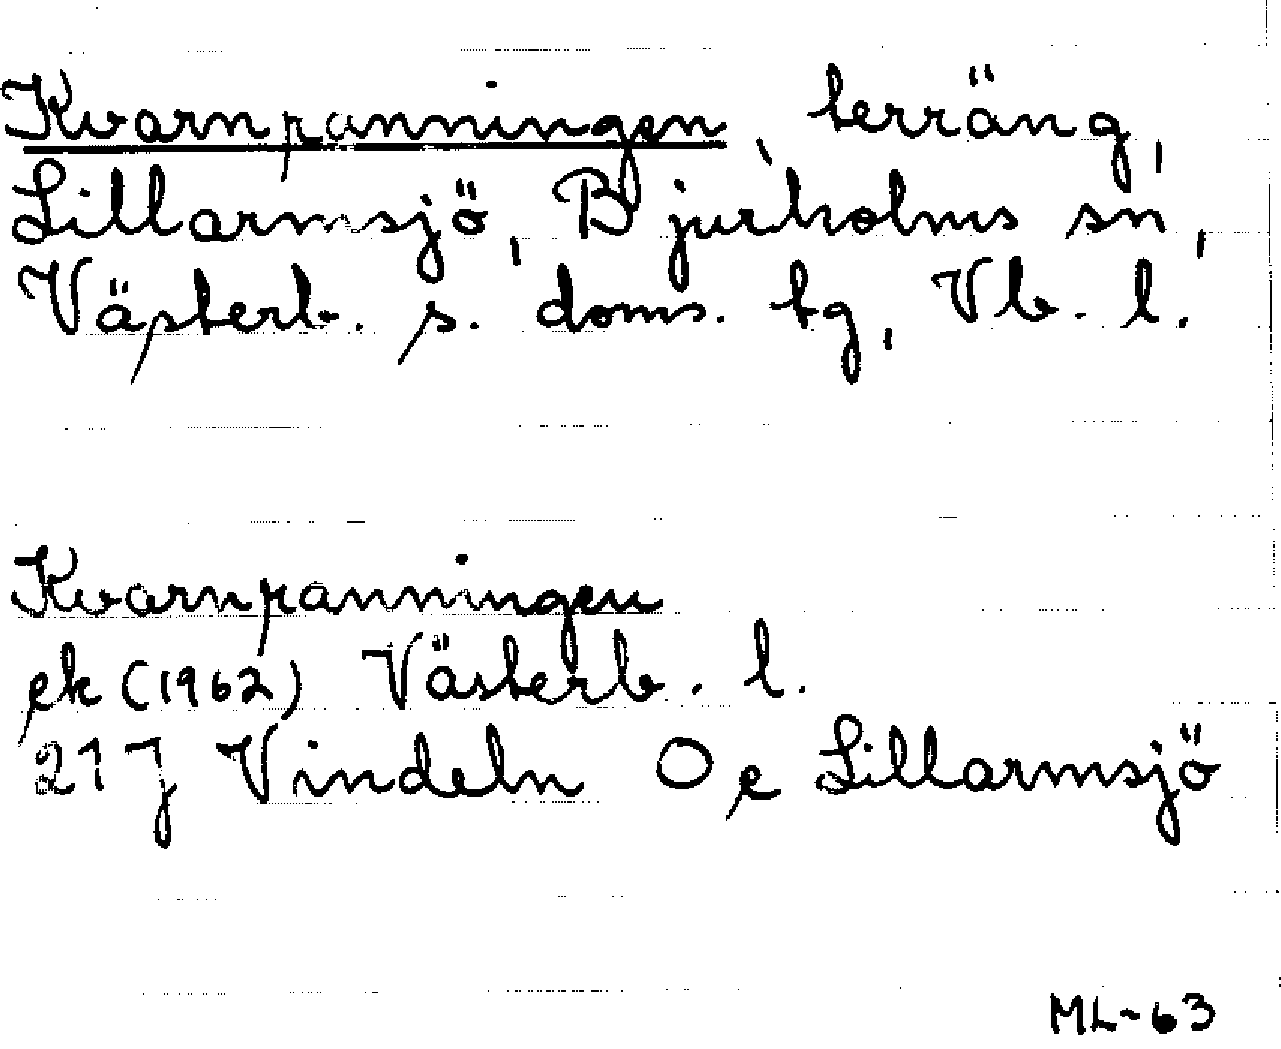 Kvarnpanningen, terräng,
Lillarmsjö, Bjurholms sn,
Västerb. s. doms. tg, Vb. l.
Kvarnpanningen
ek (1962) Västerb. l.
21 J Vindeln O, e Lillarmsjö
ML-63